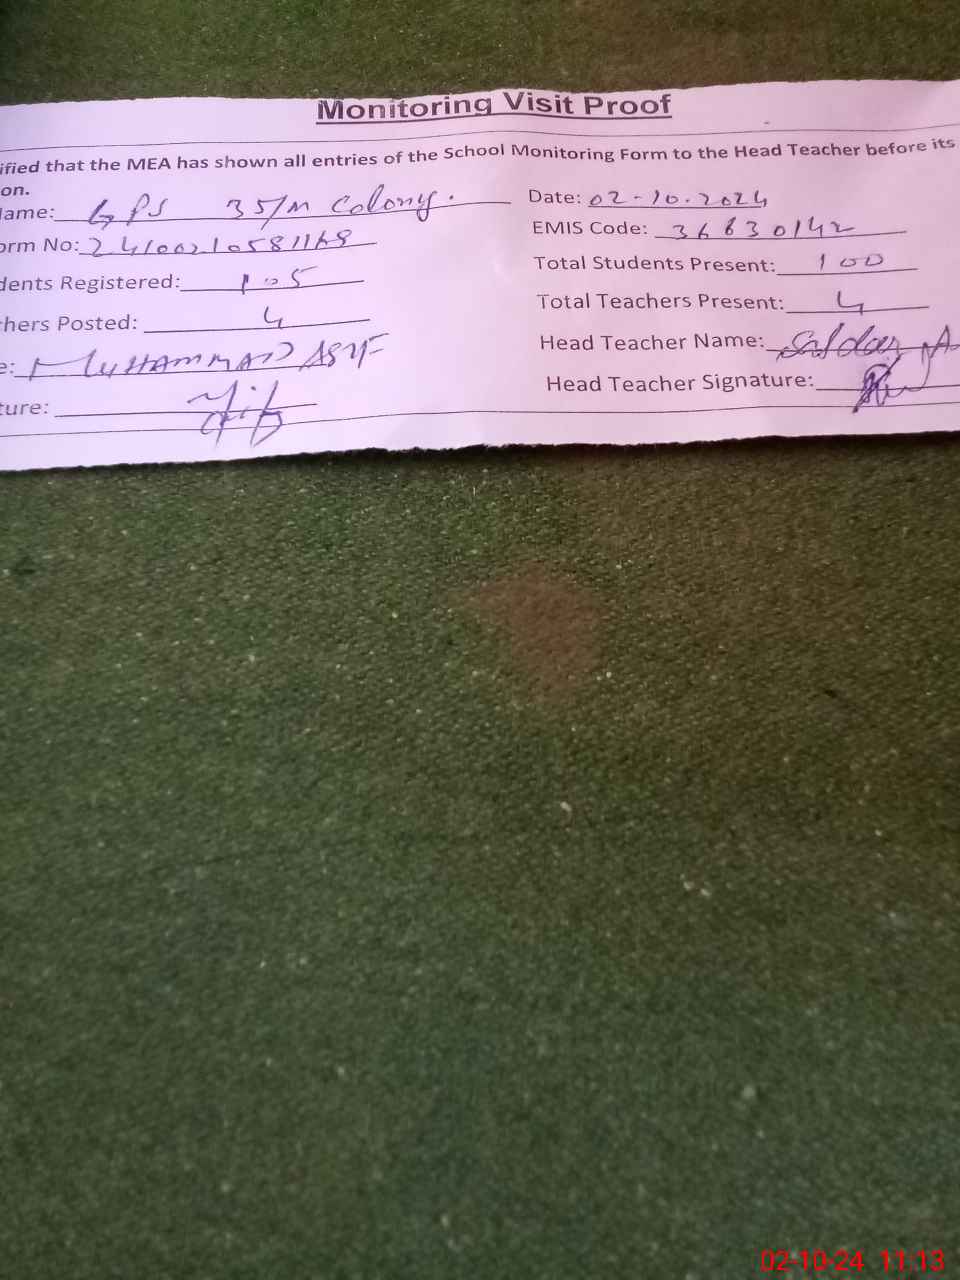 Monitoring Visit Proof
ified that the MEA has shown all entries of the School Monitoring Form to the Head Teacher before its
on.
Name: GPS 35/M Colony. Date: 02-10-2024
orm No: 2410021058116 EMIS Code: 36630142
dents Registered: 105 Total Students Present: 100
hers Posted: 4 Total Teachers Present: 4
e: MUHAMMAD ASIF Head Teacher Name:
ture: Head Teacher Signature:
02-10-24 11:13